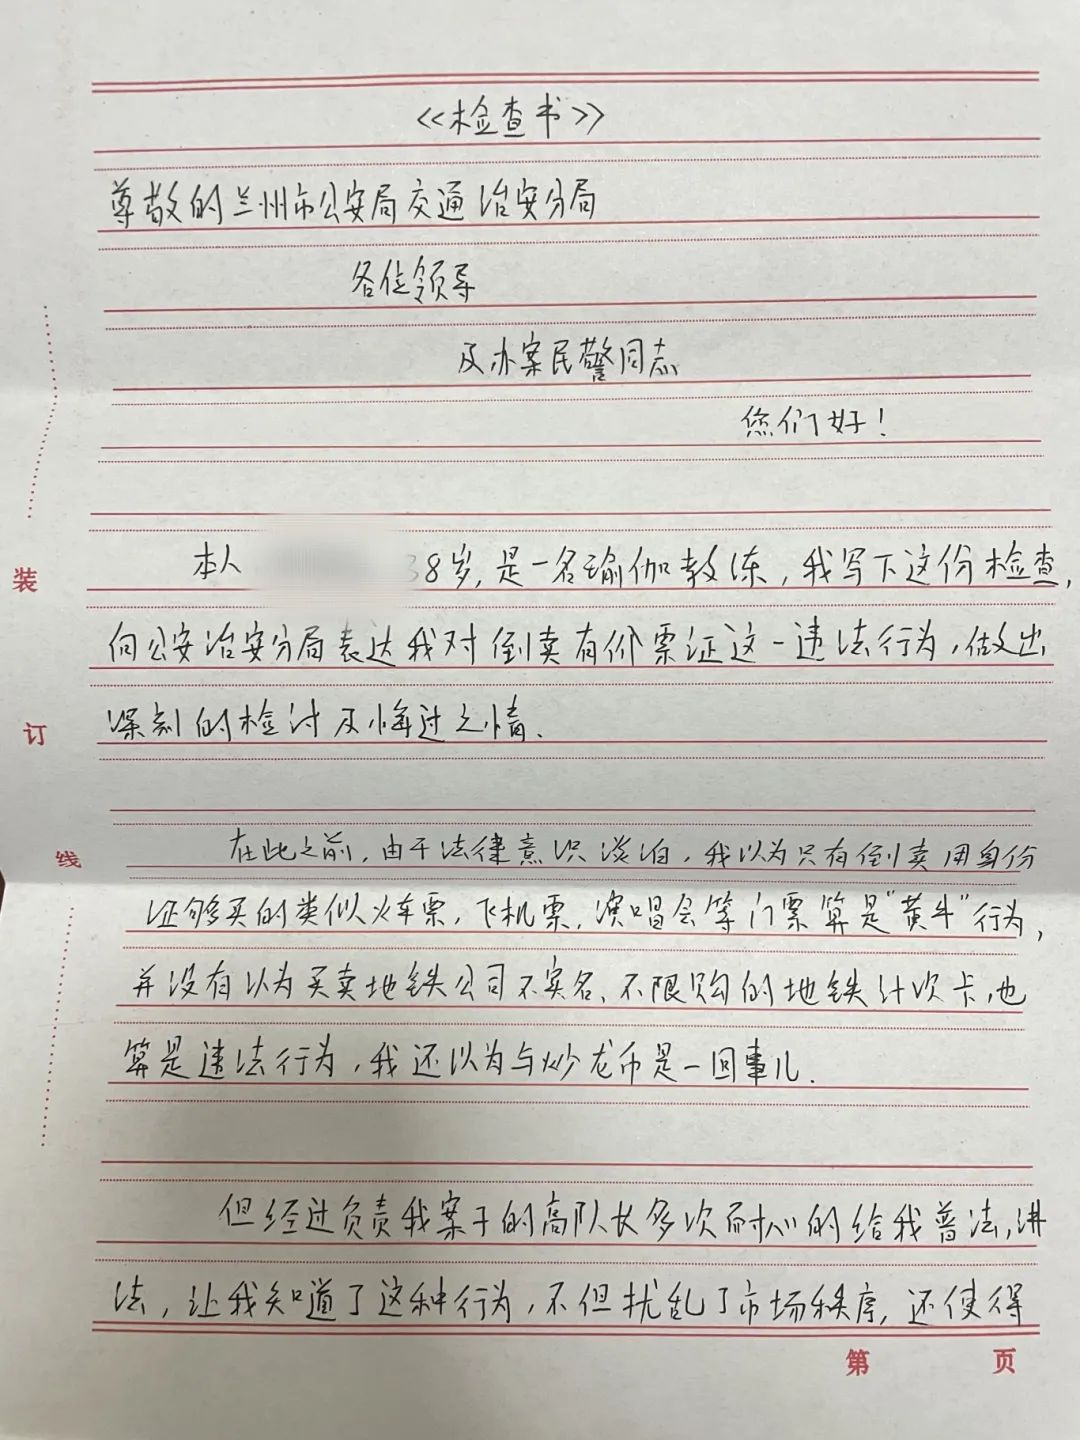 《检查书》
尊敬的兰州市公安局交通治安分局
各位领导
及办案民警同志
您们好！
本人 38岁，是一名瑜伽教练，我写下这份检查，
装
向公安治安分局表达我对倒卖有价票证这一违法行为，做出
订
深刻的检讨及悔过之情．
线
在此之前，由于法律意识淡泊，我以为只有倒卖用身份
证够买的类似火车票，飞机票，演唱会等门票算是“黄牛”行为，
并没有以为买卖地铁公司不实名、不限购的地铁计次卡，也
算是违法行为，我还以为与炒龙币是一回事儿．
但经过负责我案子的高队长多次耐心的给我普法，讲
法，让我知道了这种行为，不但扰乱了市场秩序，还使得
第 页